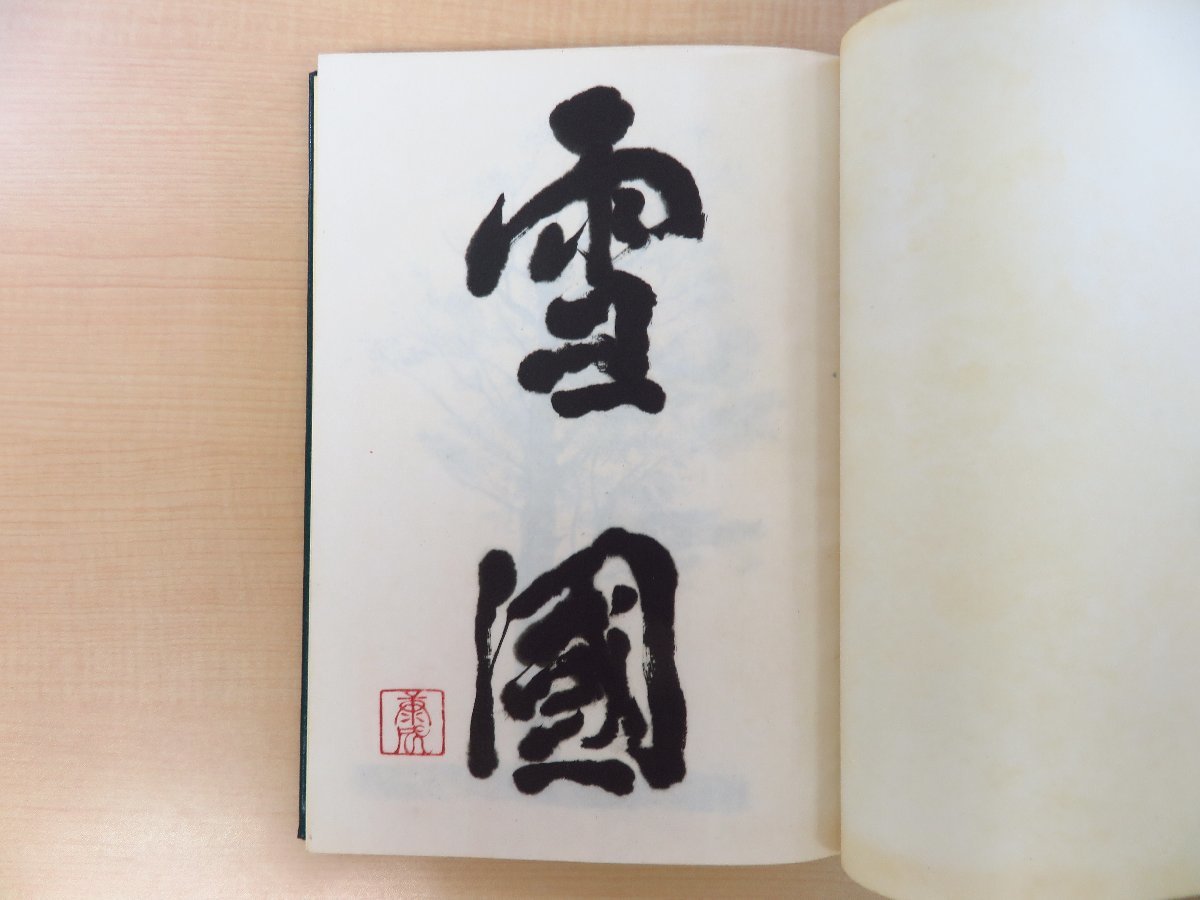 雪國
康成